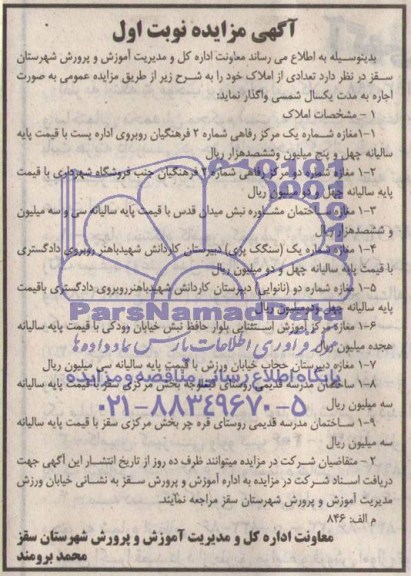 آگهی مزایده نوبت اول
بدینوسیله به اطلاع می رساند معاونت اداره کل و مدیریت آموزش و پرورش شهرستان
سقز در نظر دارد تعدادی از املاک خود را به شرح زیر از طریق مزایده عمومی به صورت
اجاره به مدت یکسال شمسی واگذار نماید:
۱- مشخصات املاک
۱-۱مغازه شماره یک مرکز رفاهی شماره ۲ فرهنگیان روبروی اداره پست با قیمت پایه
سالیانه چهل و پنج میلیون وششصدهزار ریال
۱-۲ مغازه شماره دو مرکز رفاهی شماره ۲ فرهنگیان جنب فروشگاه شهرداری با قیمت
پایه سالیانه چهل و دو میلیون ریال
۱-۳ مغازه ساختمان مشاوره نبش میدان قدس با قیمت پایه سالیانه سی و سه میلیون
و ششصدهزار ریال
۱-۴ مغازه شماره یک (سنگک پزی) دبیرستان کاردانش شهیدباهنر روبروی دادگستری
با قیمت پایه سالیانه چهل و دو میلیون ریال
۱-۵ مغازه شماره دو (نانوایی) دبیرستان کاردانش شهیدباهنرروبروی دادگستری باقیمت
پایه سالیانه چهل ودومیلیون ریال
ParsNamadData
۱-۶ مغازه مرکز آموزش استثنایی بلوار حافظ نبش خیابان رودکی با قیمت پایه سالیانه
هجده میلیون ریال
مرکز فرآوری اطلاعات پارس نماد داده ها
۱-۷ مغازه دبیرستان حجاب خیابان ورزش با قیمت پایه سالیانه سی میلیون ریال
پایگاه اطلاع رسانی مناقصه و مزایده
۱-۸ ساختمان مدرسه قدیمی روستای بخش مرکزی سقز با قیمت پایه سالیانه
سه میلیون ریال
۰۲۱-۸۸۳۴۹۶۷۰-۵
۱-۹ ساختمان مدرسه قدیمی روستای قره چر بخش مرکزی سقز با قیمت پایه سالیانه
سه میلیون ریال
۲- متقاضیان شرکت در مزایده میتوانند ظرف ده روز از تاریخ انتشار این آگهی جهت
دریافت اسناد شرکت در مزایده به اداره آموزش و پرورش سـقز به نشانی خیابان ورزش
مدیریت آموزش و پرورش شهرستان سقز مراجعه نمایند.
م الف: ۸۴۶
معاونت اداره کل و مدیریت آموزش و پرورش شهرستان سقز
محمد برومند